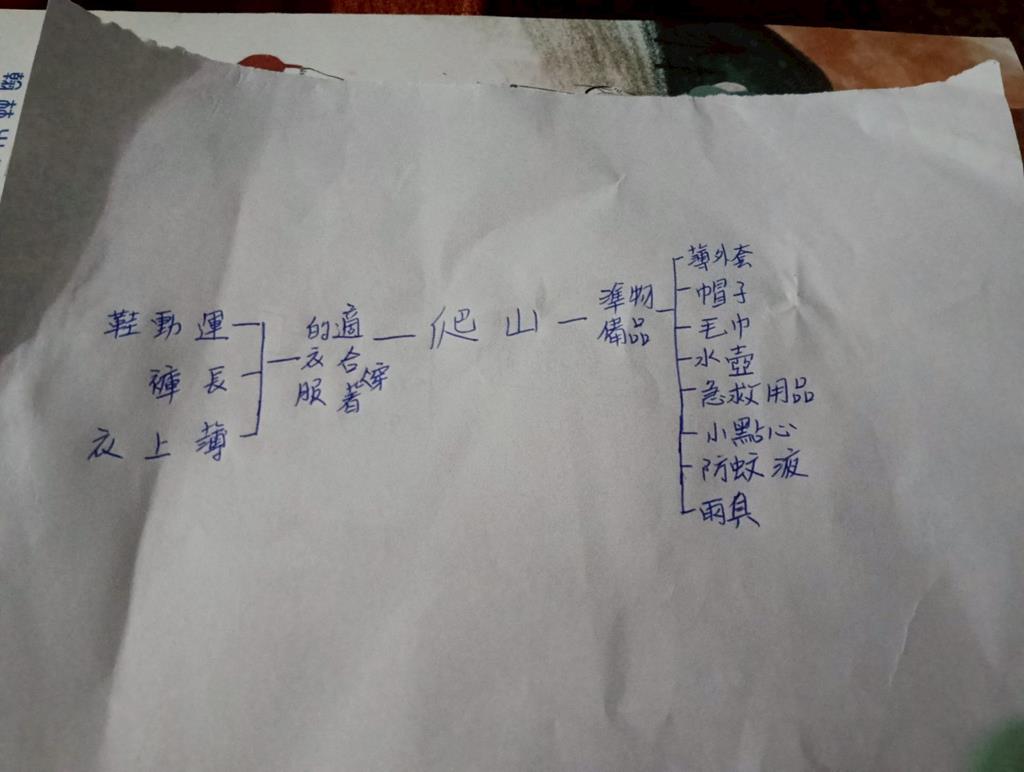 翰林
爬山
適合穿著
的衣服
運動鞋
長褲
薄上衣
準備
物品
薄外套
帽子
毛巾
水壺
急救用品
小點心
防蚊液
雨具